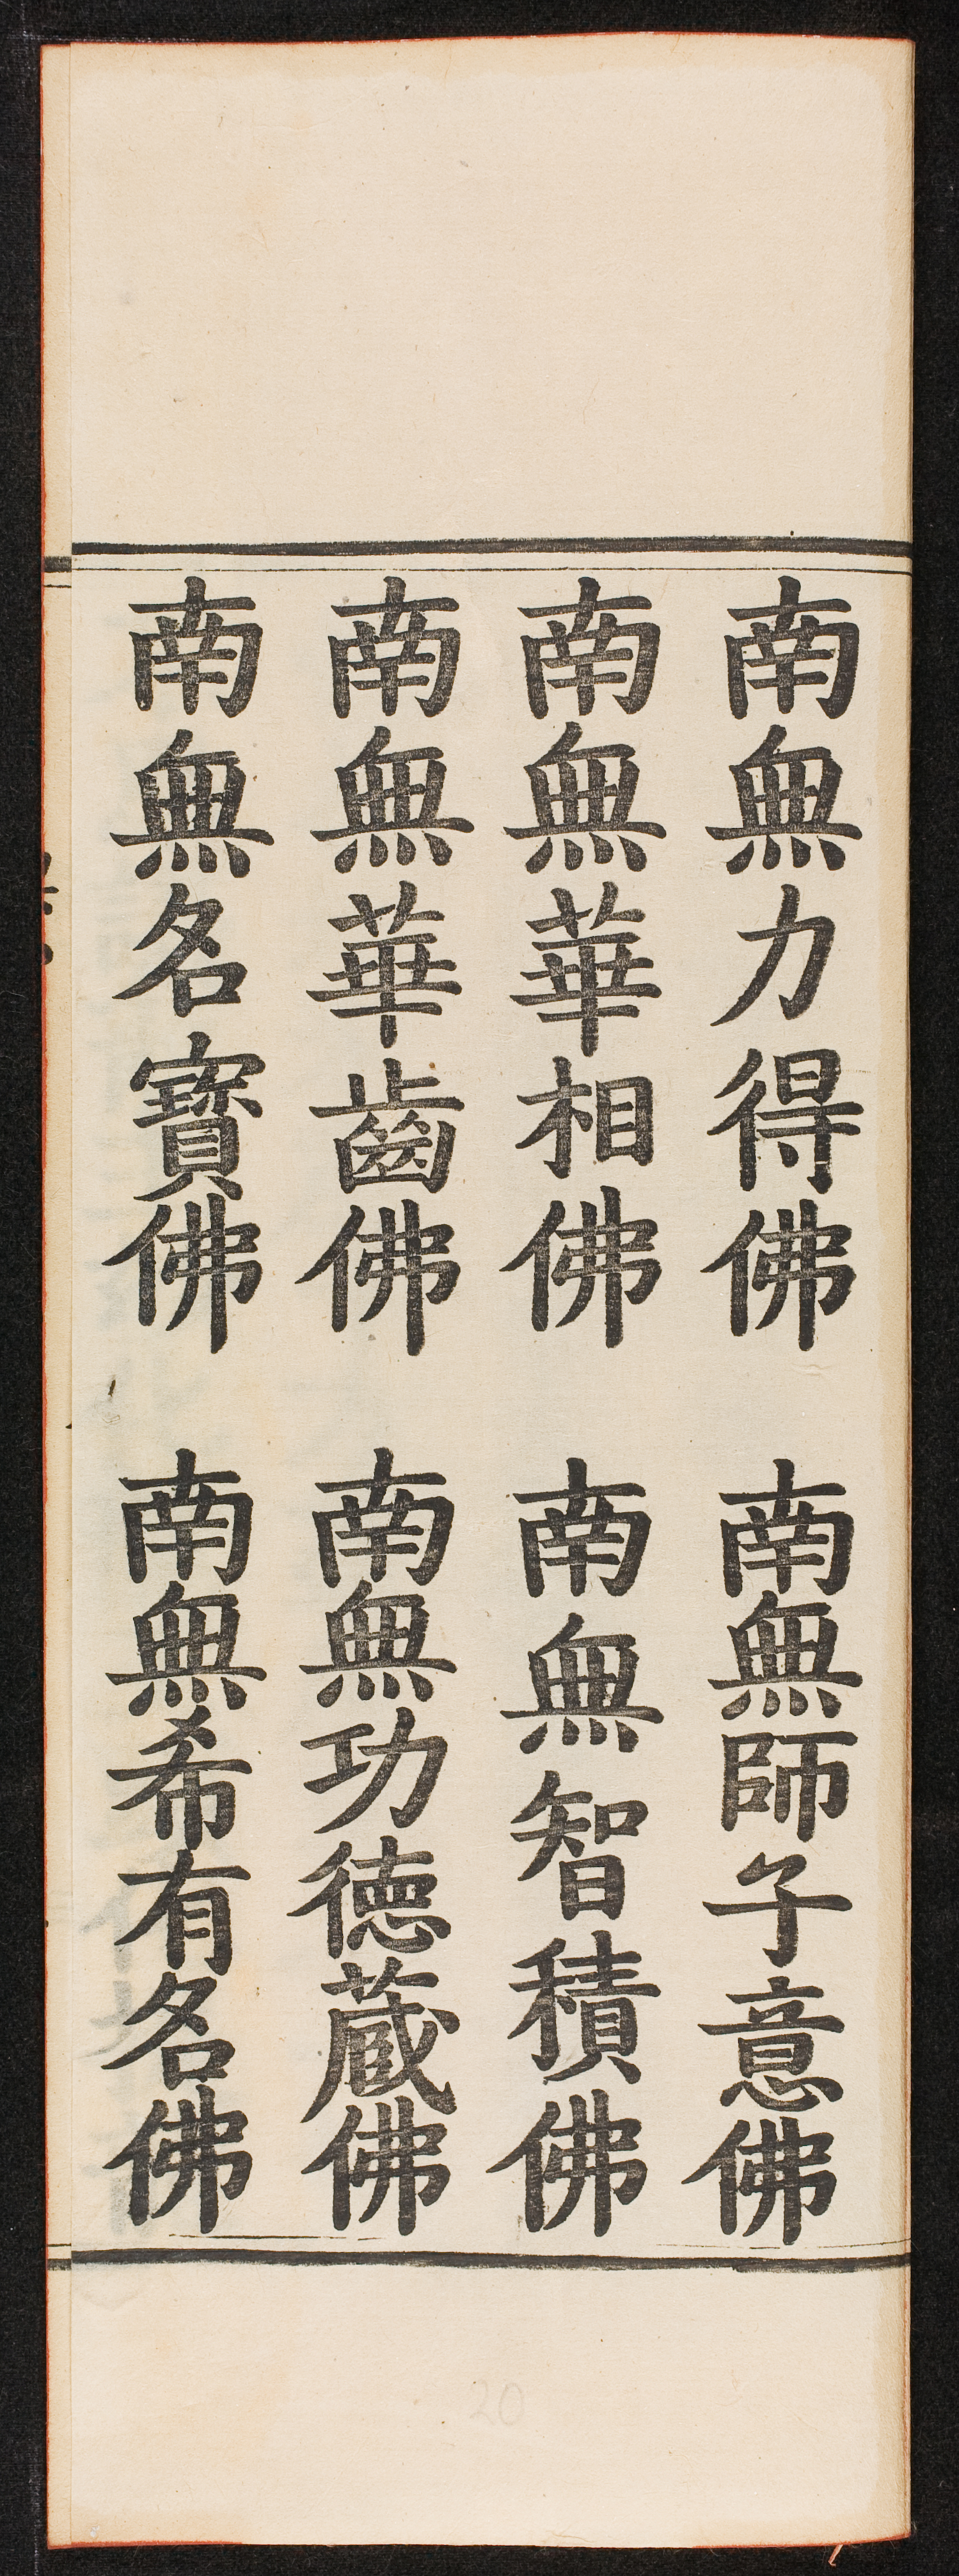 南無力得佛 南無師子意佛
南無華相佛 南無智積佛
南無華齒佛 南無功德藏佛
南無名寳佛 南無希有名佛
20